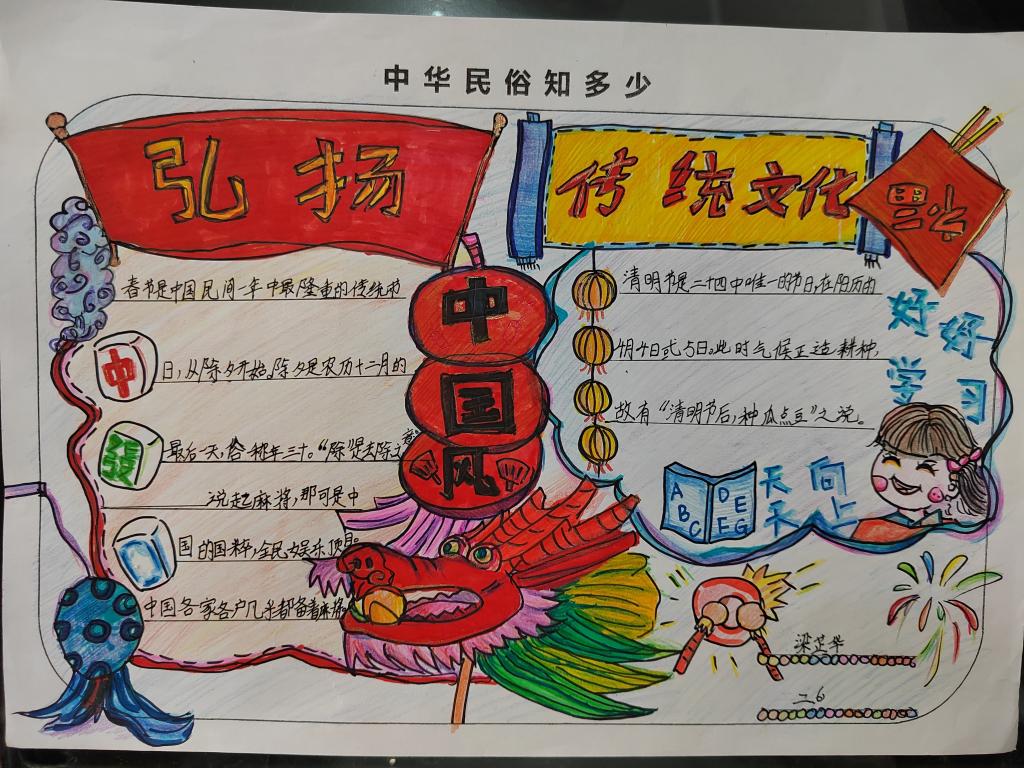 中华民俗知多少
弘扬
传统文化
福
春节是中国民间一年中最隆重的传统节
日，从除夕开始。除夕是农历十二月的
最后一天，俗称年三十。“除”是去除之意
说起麻将，那可是中
国的国粹，全民娱乐顶
中国各家各户几乎都备着麻将
中
發
中国风
清明节是二十四中唯一的节日，在阳历的
4月4日或5日。此时气候正适耕种，
故有“清明节后，种瓜点豆”之说。
好好
学习
天天
向上
A
B
C
D
E
E
F
G
梁芷华
二6